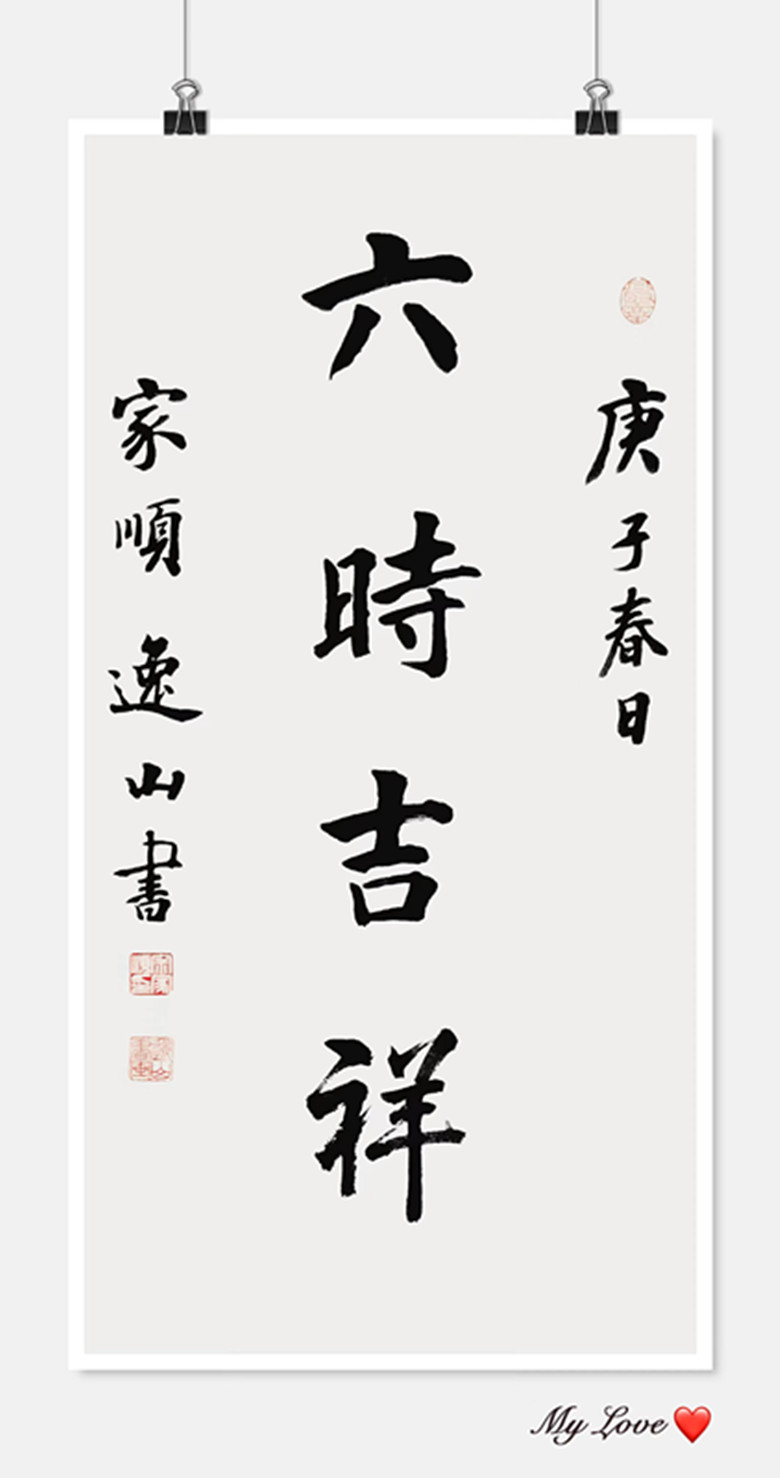 庚子春日
六時吉祥
家順 逸山書
My Love❤️